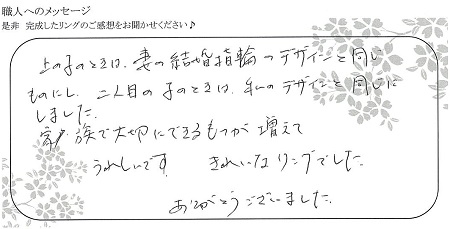 職人へのメッセージ
是非 完成したリングのご感想をお聞かせください♪
上の子のときは、妻の結婚指輪のデザインと同じ
ものにし、二人目の子のときは、私のデザインと同じに
しました。
家族で大切にできるものが増えて
うれしいです。 きれいなリングでした。
ありがとうございました。